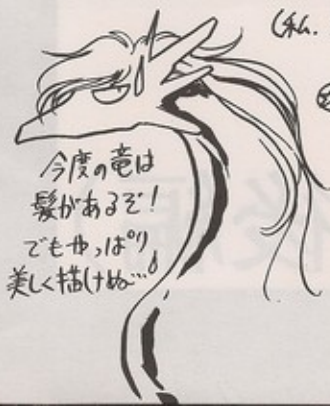 (私.
今度の竜は
髪があるぞ！
でもやっぱり
美しく描けぬ…